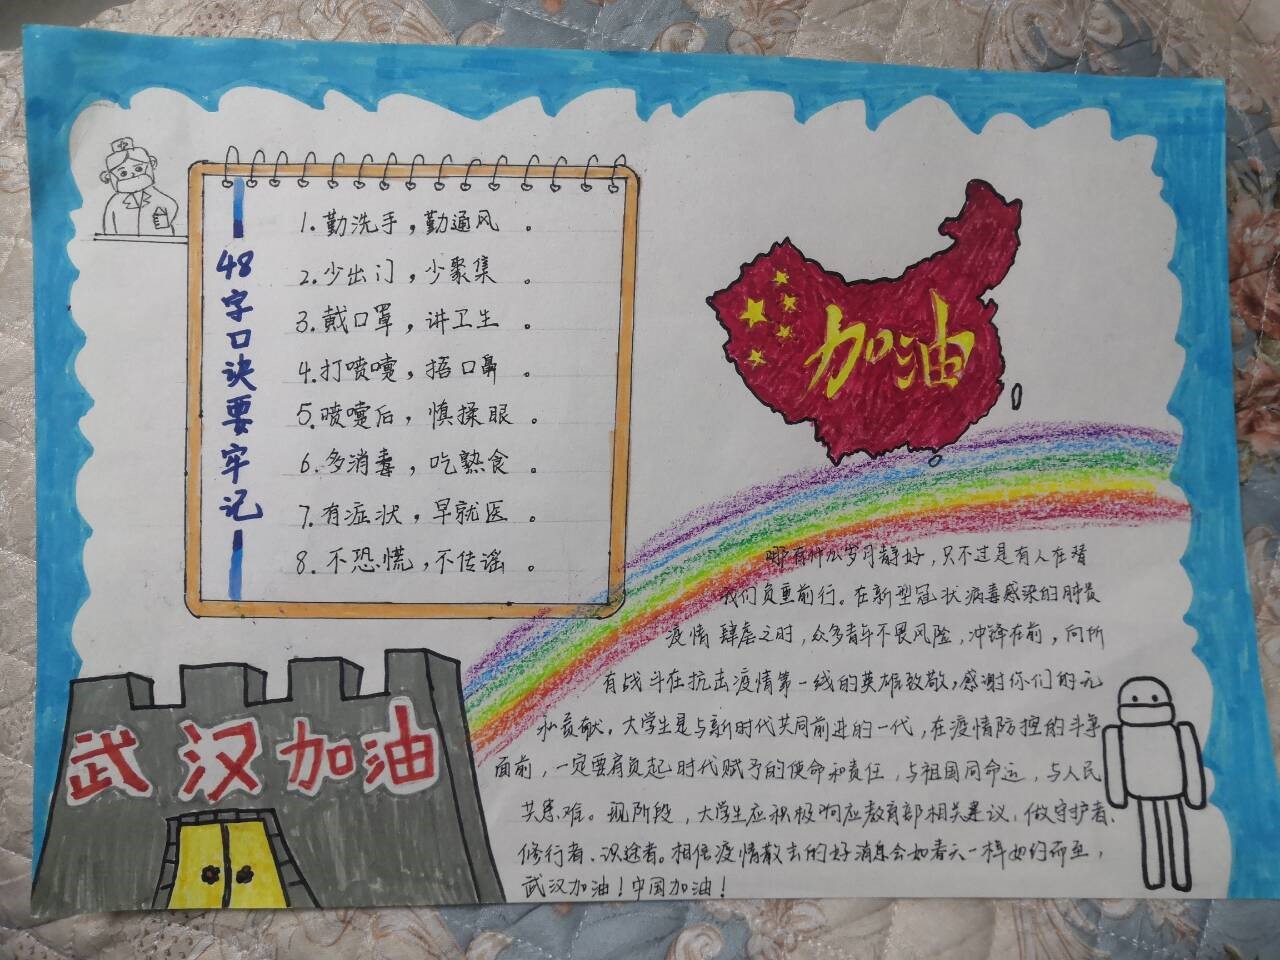 48字口诀要牢记
1.勤洗手，勤通风。
2.少出门，少聚集。
3.戴口罩，讲卫生。
4.打喷嚏，捂口鼻。
5.喷嚏后，慎揉眼。
6.多消毒，吃熟食。
7.有症状，早就医。
8.不恐慌，不传谣。
加油
武汉加油
哪有什么岁月静好，只不过是有人在替
我们负重前行。在新型冠状病毒感染的肺炎
疫情肆虐之时，众多青年不畏风险，冲锋在前，向所
有战斗在抗击疫情第一线的英雄致敬，感谢你们的无
私贡献。大学生是与新时代共同前进的一代，在疫情防控的斗争
面前，一定要肩负起时代赋予的使命和责任，与祖国同命运，与人民
共患难。现阶段，大学生应积极响应教育部相关建议，做守护者、
修行者、识途者。相信疫情散去的好消息会如春天一样如约而至，
武汉加油！中国加油！